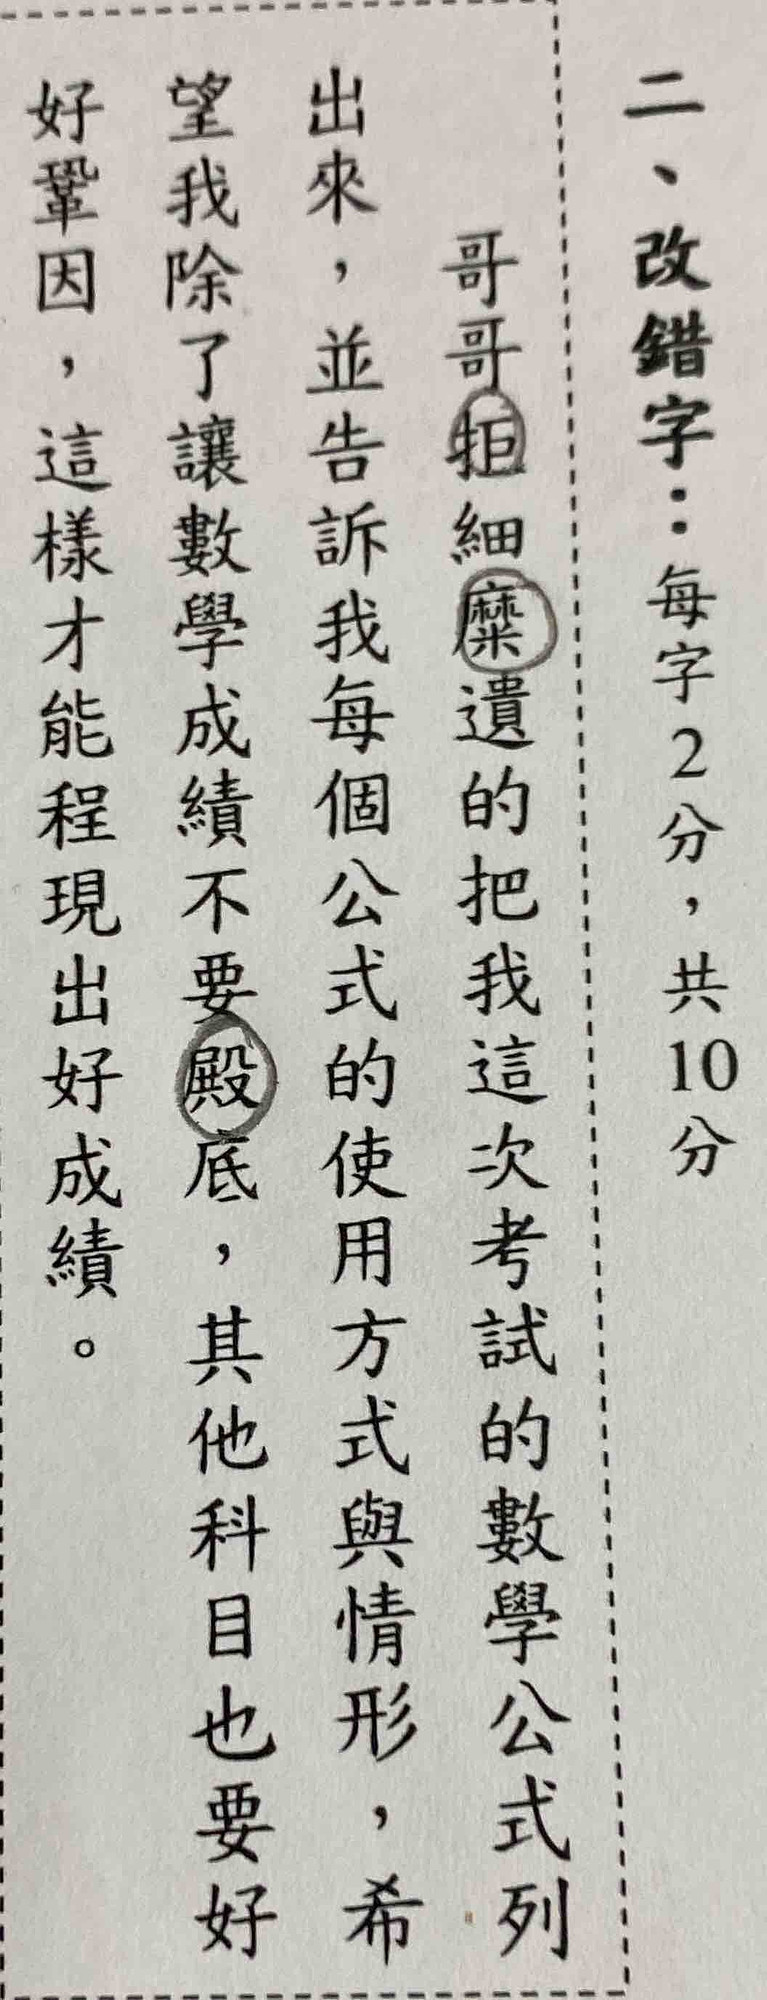 二、改錯字：每字2分，共10分
哥哥拒細糜遺的把我這次考試的數學公式列
出來，並告訴我每個公式的使用方式與情形，希
望我除了讓數學成績不要殿底，其他科目也要好
好鞏因，這樣才能程現出好成績。